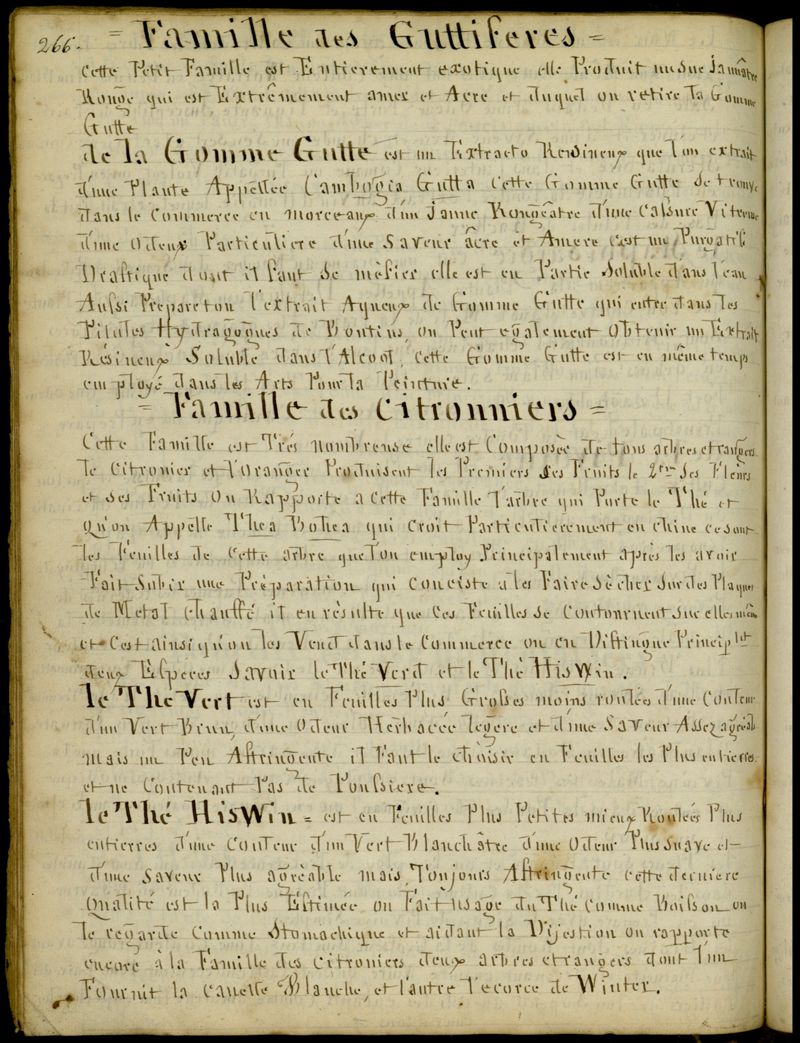 266.
= Famille des Guttiferes =
Cette Petit Famille est Entierement exotique elle Produit un Suc Jaunâtre
Rouge qui est Extrêmement amer et Acre et duquel on retire la Gomme
Gutte
de la Gomme Gutte est un Extracto Resineux que l'on extrait
d'une Plante Appellée Cambogia Gutta Cette Gomme Gutte se trouve
dans le Commerce en morceaux d'un Jaune Rougeâtre d'une Casure Vitreuse
d'une Odeur Particuliere d'une Saveur âcre et Amere C'est un Purgatif
Drastique dont il faut se mèfier elle est en Partie Soluble dans l'eau
Aussi Prepareton l'extrait Aqueux de Gomme Gutte qui entre dans les
Pilules Hydragogues de Bontius, on Peut egalement Obtenir un Extrait
Résineux Soluble dans l'Alcool, Cette Gomme Gutte est en même temps
employé dans les Arts Pour la Peinture.
= Famille des Citronniers =
Cette Famille est Trés nombreuse elle est Composée de tous arbres etrangers
le Citronier et l'Oranger Produisent les Premiers ses Fruits le 2eme ses Fleurs
et ses Fruits on Rapporte a Cette Famille l'arbre qui Porte le Thé et
qu'on Appelle Thea Bohea qui Croit Particulierement en Chine ce sont
les Feuilles de Cette arbre que l'on employ Principalement aprés les avoir
Fait Subir une Préparation qui Conciste a les Faire Sècher Sur des Plaques
de Metal Chauffé il en résulte que Ces Feuilles se Contournent Sur elle même
et C'est ainsi qu'on les Vend dans le Commerce on en Distingue Principlet
deux Especes Savoir le Thé Verd et le Thé HisWin.
le Thé Vert est en Feuilles Plus Grosses moins roulées d'une Couleur
d'un Vert Brun, d'une Odeur Herbacée legere et d'une Saveur Assez agréabl
mais un Peu Astringente il Faut le Choisir en Feuilles les Plus entierres
et ne Contenant Pas de Poussiere.
le Thé HisWin = est en Feuilles Plus Petites mieux Roulées Plus
entierres d'une Couleur d'un Vert Blanchâtre d'une Odeur Plus Suave et
d'une Saveur Plus agréable mais Toujours Astringente Cette derniere
Qualité est la Plus Estimée on Fait usage du Thé Comme Boisson on
le regarde Comme Stomachique et aidant la Digestion on rapporte
encore à la Famille des Citroniers deux arbres etrangers dont l'un
Fournit la Canelle Blanche, et l'autre l'ecorce de Winter.